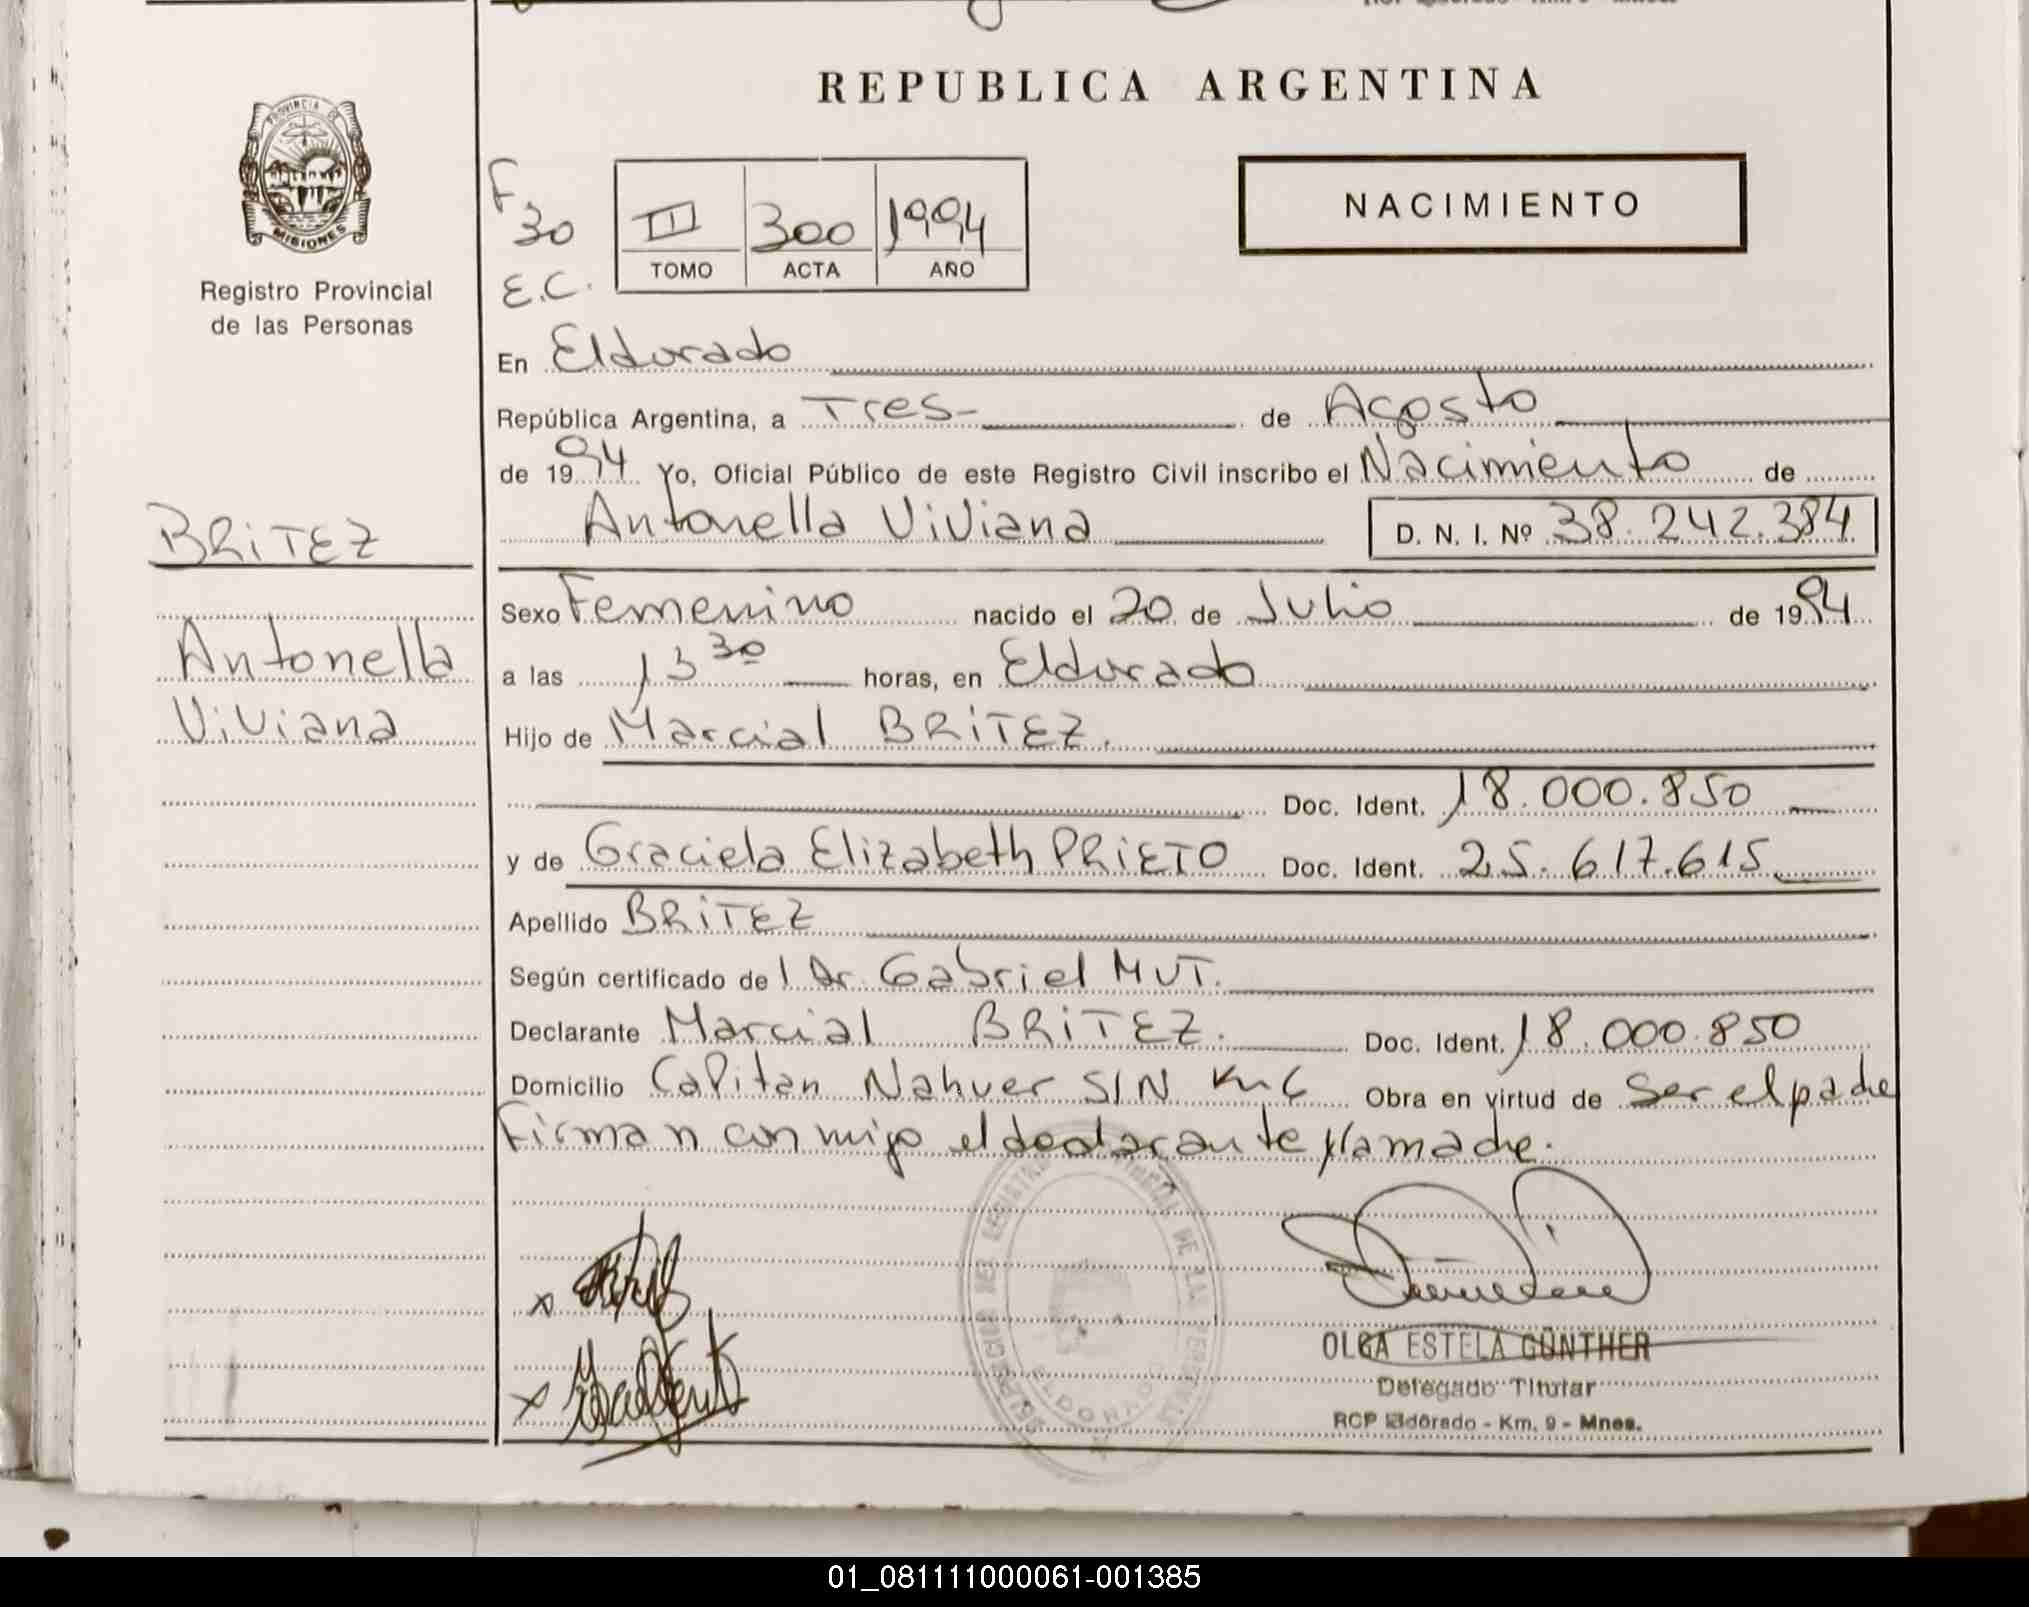 REPUBLICA ARGENTINA
PROVINCIA DE
MISIONES
Registro Provincial
de las Personas
F
30
E.C.
III 300 1994
TOMO ACTA AÑO
NACIMIENTO
En Eldorado
República Argentina, a Tres- de Agosto
de 1994 Yo, Oficial Público de este Registro Civil inscribo el Nacimiento de
Antonella Viviana D. N. I. Nº 38.242.384
BRITEZ
Antonella
Viviana
Sexo Femenino nacido el 20 de Julio de 1994
a las 13 30 horas, en Eldorado
Hijo de Marcial BRITEZ.
Doc. Ident. 18.000.850
y de Graciela Elizabeth PRIETO Doc. Ident. 25.617.615
Apellido BRITEZ
Según certificado de l Dr. Gabriel MUT.
Declarante Marcial BRITEZ. Doc. Ident. 18.000.850
Domicilio Capitan Nahuer S/N Km 6 Obra en virtud de Ser el padre
Firman conmigo el declarante y la madre.
x
x
ELDORADO
OLGA ESTELA GÜNTHER
Delegado Titular
RCP Eldorado - Km. 9 - Mnes.
01_081111000061-001385